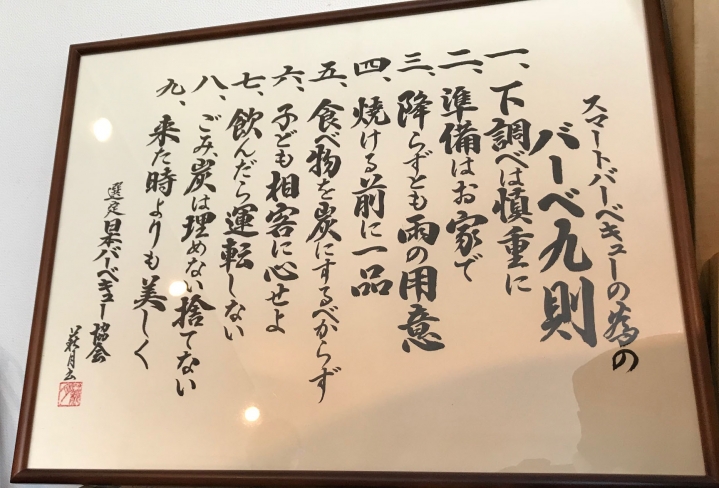 スマートバーベキューの為の
バーベ九則
一、下調べは慎重に
二、準備はお家で
三、降らずとも雨の用意
四、焼ける前に一品
五、食べ物を炭にするべからず
六、子ども相客に心せよ
七、飲んだら運転しない
八、ごみ、炭は埋めない捨てない
九、来た時よりも美しく
選定 日本バーベキュー協会